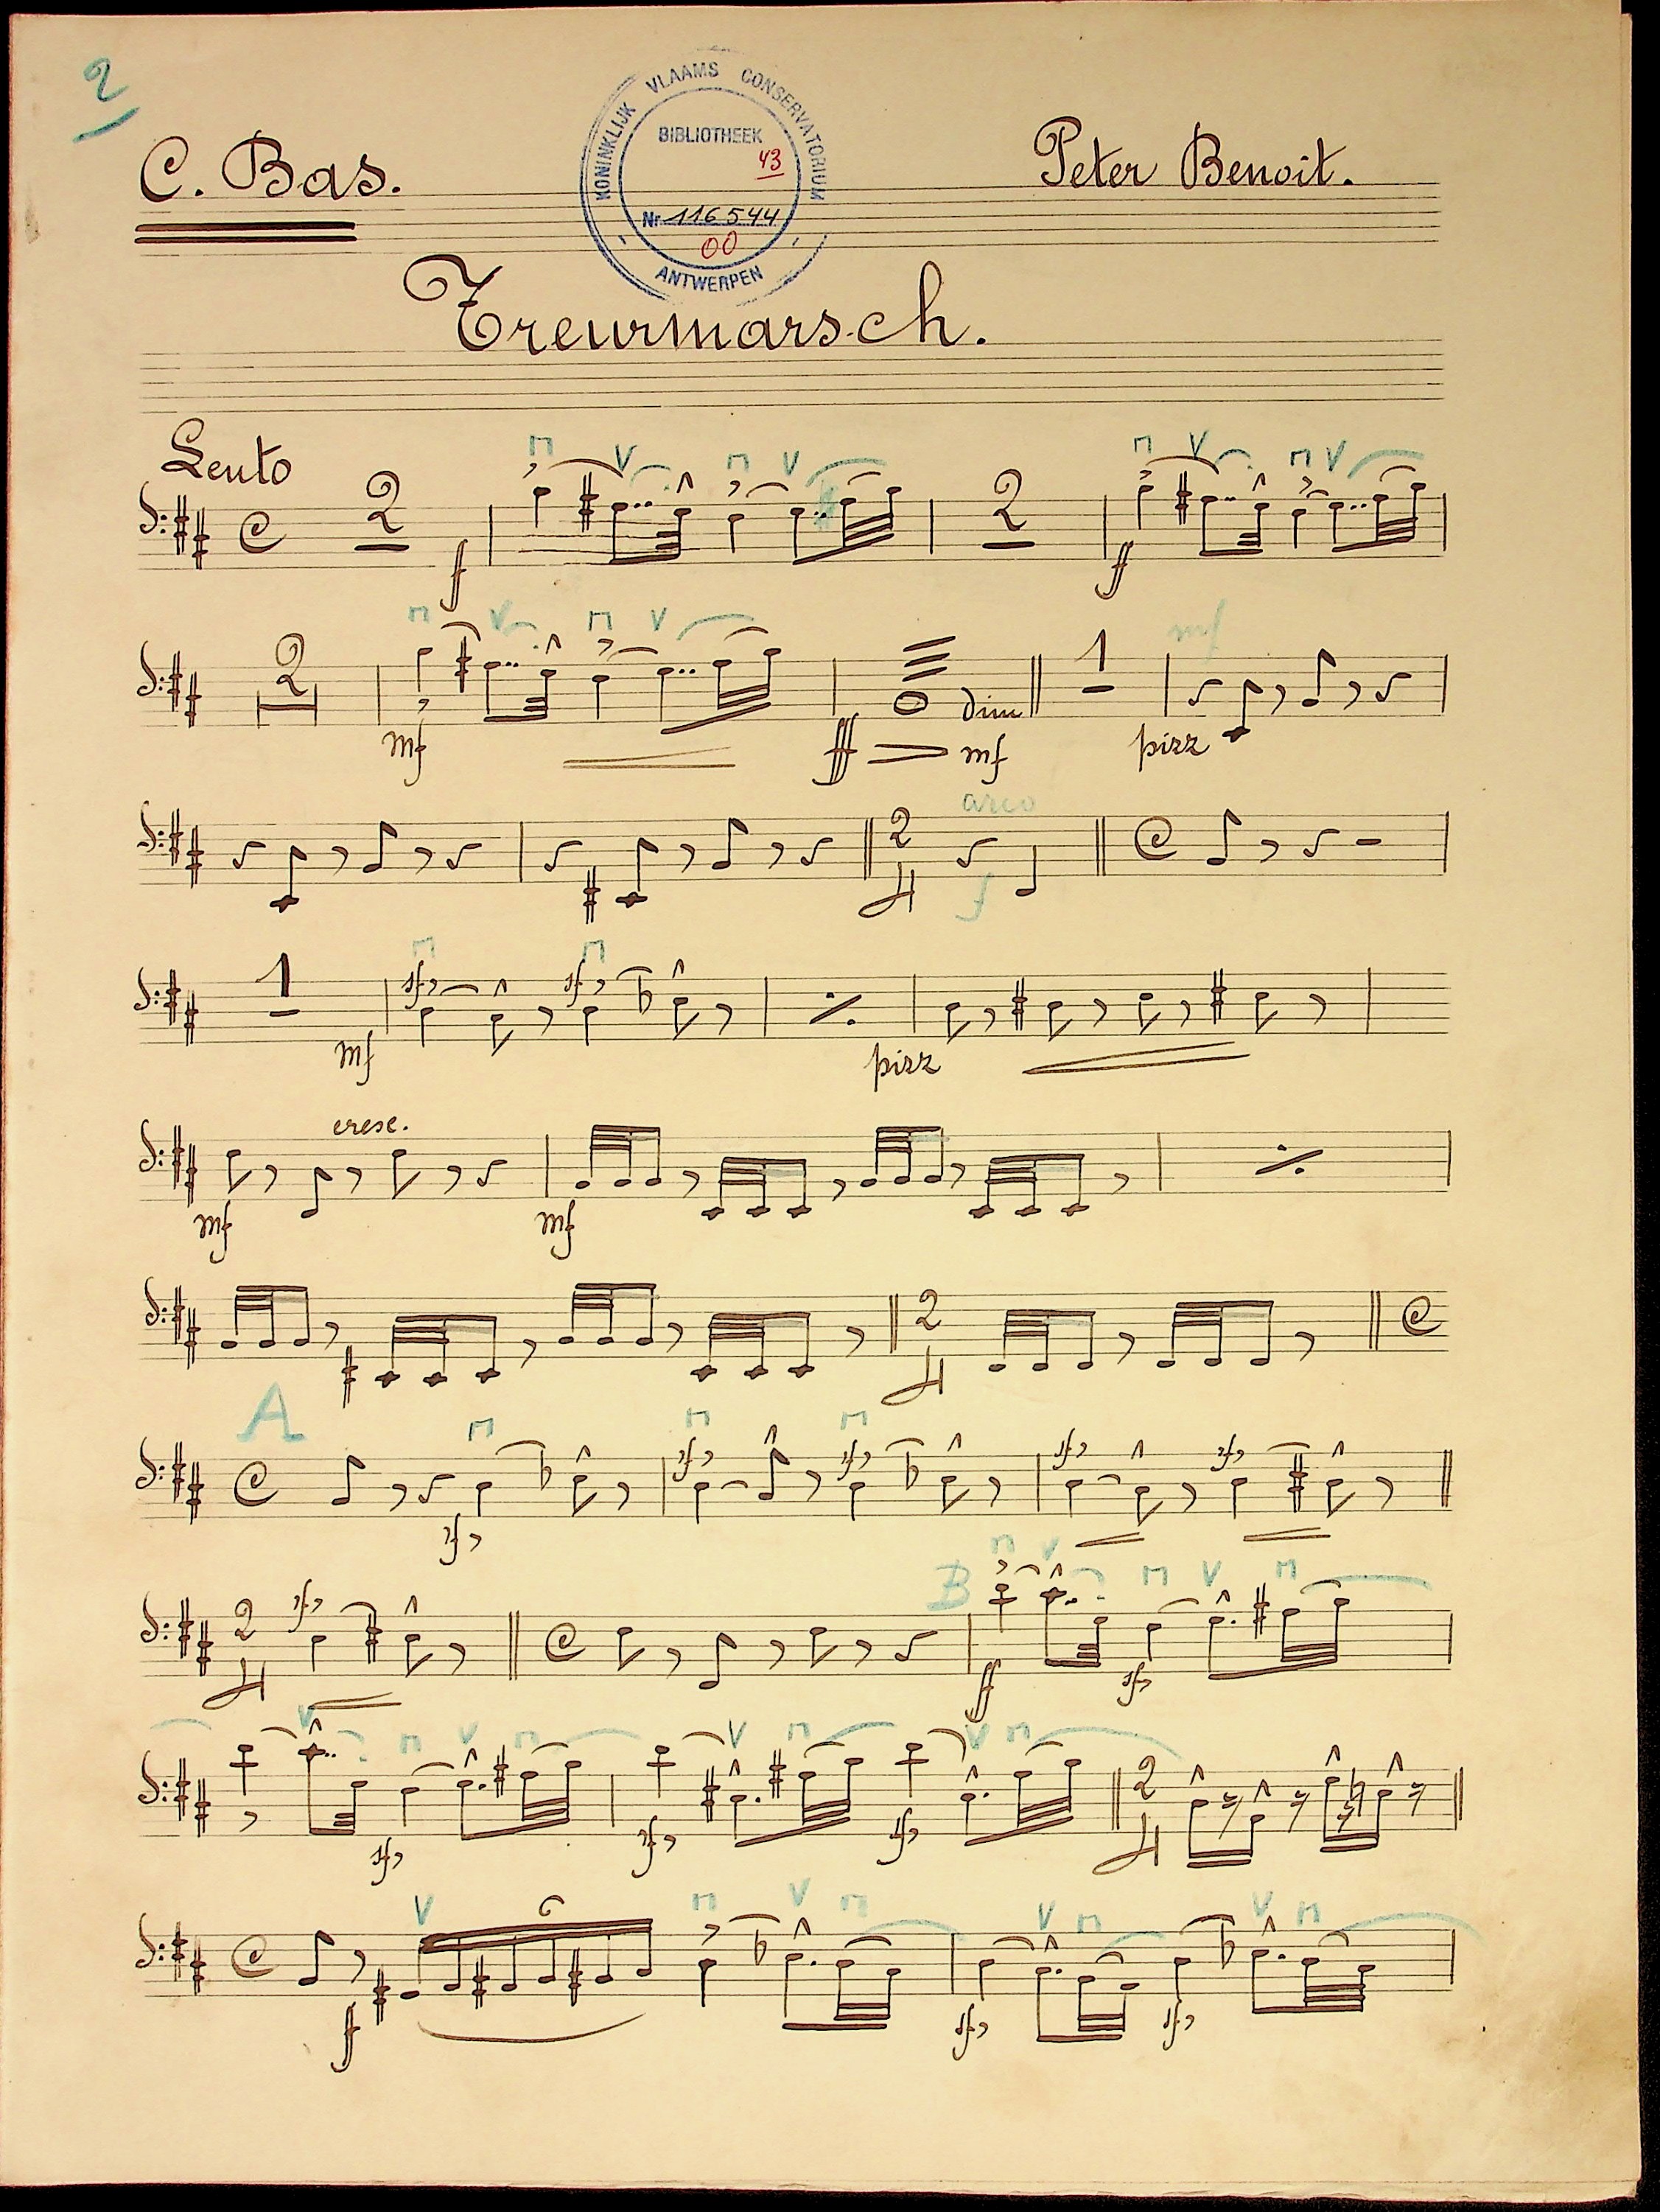 2
C. Bas.
KONINKLIJK VLAAMS CONSERVATORIUM
BIBLIOTHEEK
43
Nr 116544
00
ANTWERPEN
Peter Benoit.
Treurmarsch.
Lento
2 f 2 ff
2 mf ff dim mf 1 pizz mf
2 4 arco f
1 mf sf sf pizz
mf cresc. mf
2 4
A sf sf sf sf sf
2 4 sf B ff sf
sf sf sf 2 4
f 6 sf sf